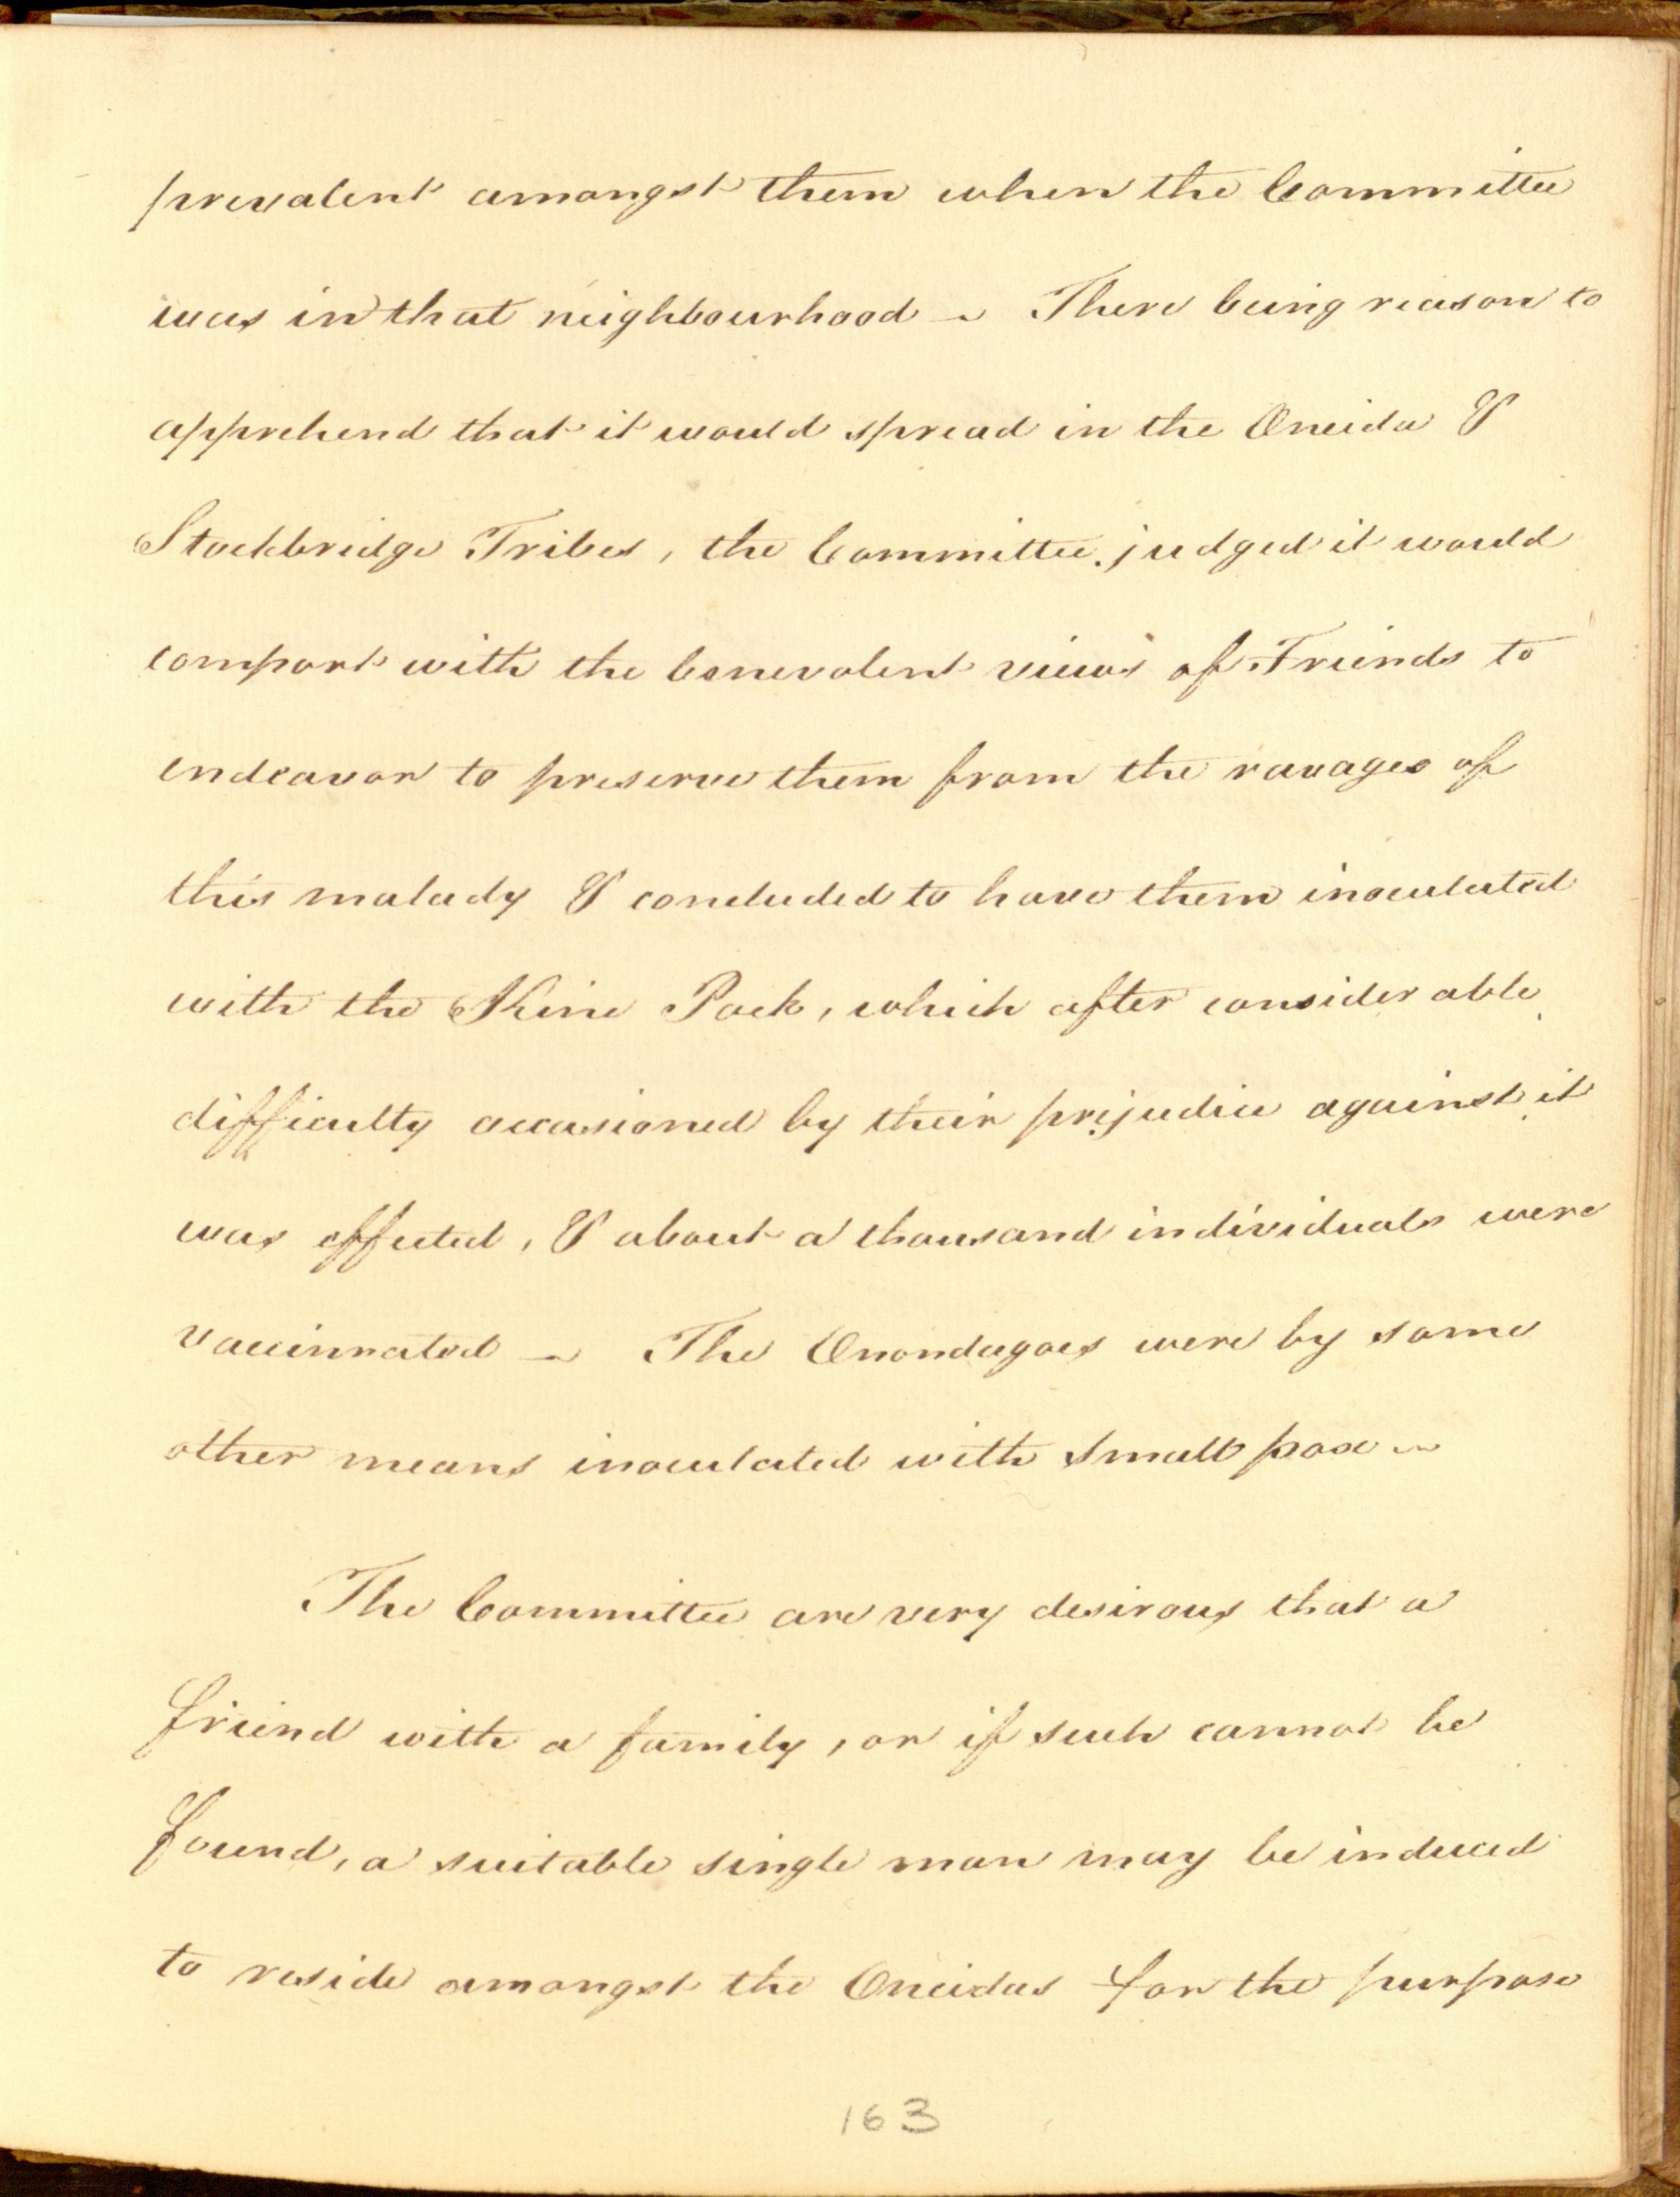 prevalent amongst them when the Committee
was in that neighbourhood – There being reason to
apprehend that it would spread in the Oneida &
Stockbridge Tribes, the Committee judged it would
comport with the benevolent views of Friends to
endeavor to preserve them from the ravages of
this malady & concluded to have them inoculated
with the Kine Pock, which after considerable
difficulty occasioned by their prejudice against it
was effected, & about a thousand individuals were
vaccinnated – The Onondagoes were by some
other means inoculated with small pox –
The Committee are very desirous that a
friend with a family, or if such cannot be
found, a suitable single man may be induced
to reside amongst the Oneidas for the purpose
163